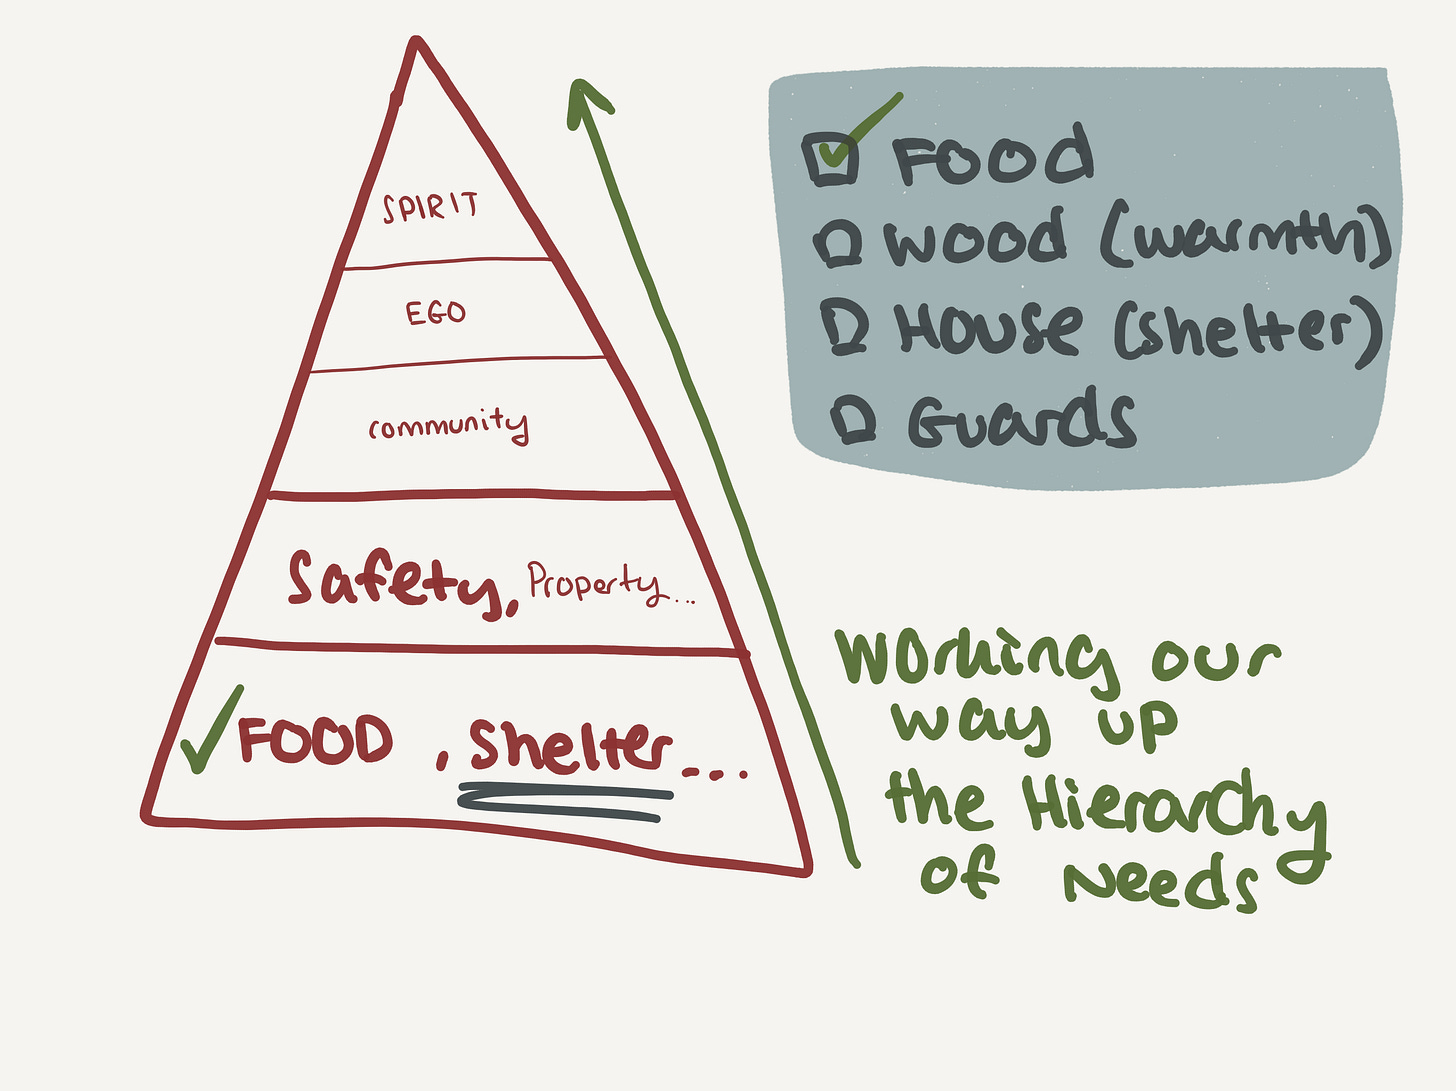 SPIRIT
EGO
community
Safety, Property...
FOOD, Shelter...
Food
Wood (warmth)
House (shelter)
Guards
Working our
way up
the Hierarchy
of Needs